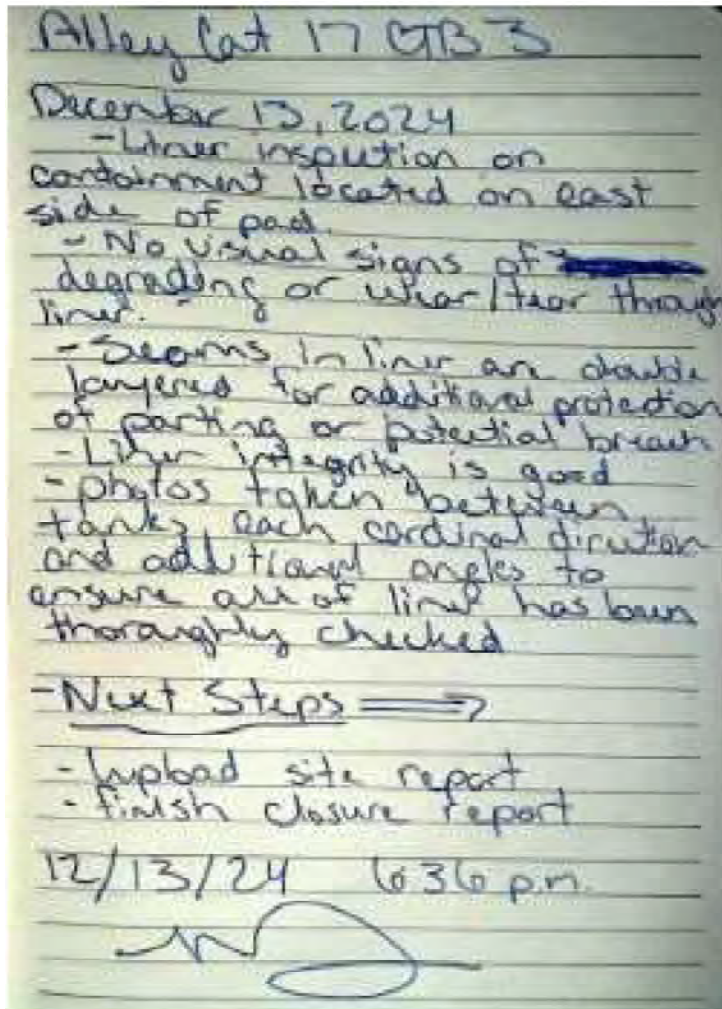 Alley Cat 17 CTB 3
December 13, 2024
- Liner inspection on
containment located on east
side of pad.
- No visual signs of
degrading or wear/tear through
liner.
- Seams in liner are double
layered for additional protection
of parting or potential breach
- Liner integrity is good
- photos taken between
tanks, each cardinal direction
and additional angles to
ensure all of liner has been
thoroughly checked
- Next Steps ⟹
- Upload site report
- finish closure report
12/13/24 636 p.m.